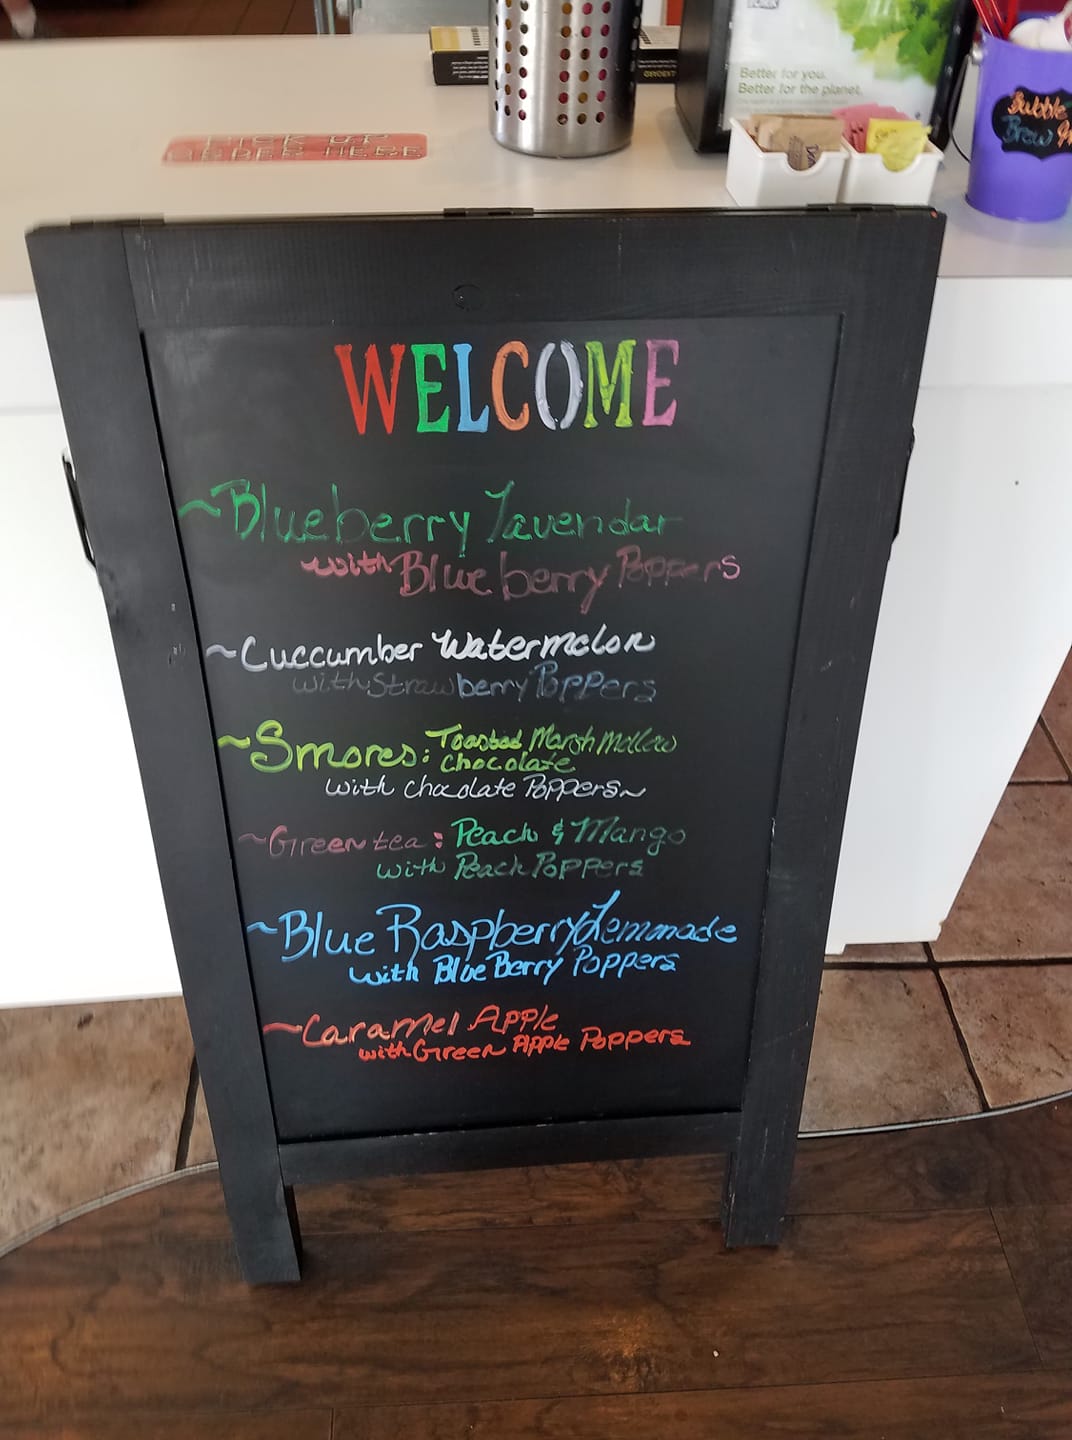 Better for you.
Better for the planet.
Bubble
Brew
PICK UP
ORDER HERE
WELCOME
~Blueberry Lavendar
with Blueberry Poppers
~Cuccumber Watermelon
with Strawberry Poppers
~Smores: Toasted Marshmallow
Chocolate
with chocolate Poppers~
~Green tea: Peach & Mango
with Peach Poppers
~Blue Raspberry Lemonade
with Blue Berry Poppers
~Caramel Apple
with Green Apple Poppers